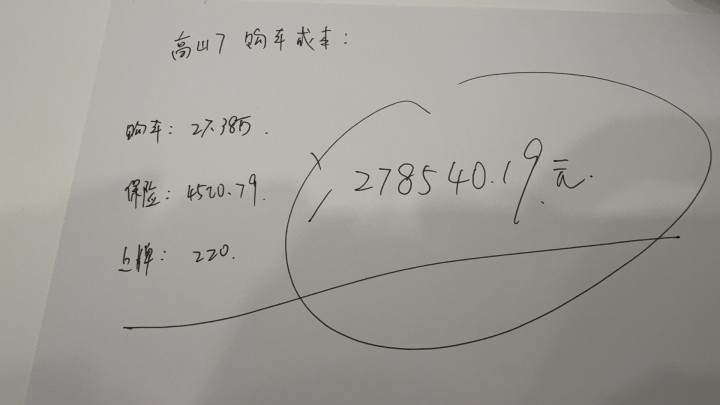 高山7 购车成本：
购车：27.38万.
保险：4520.79.
上牌：220.
278540.19元.